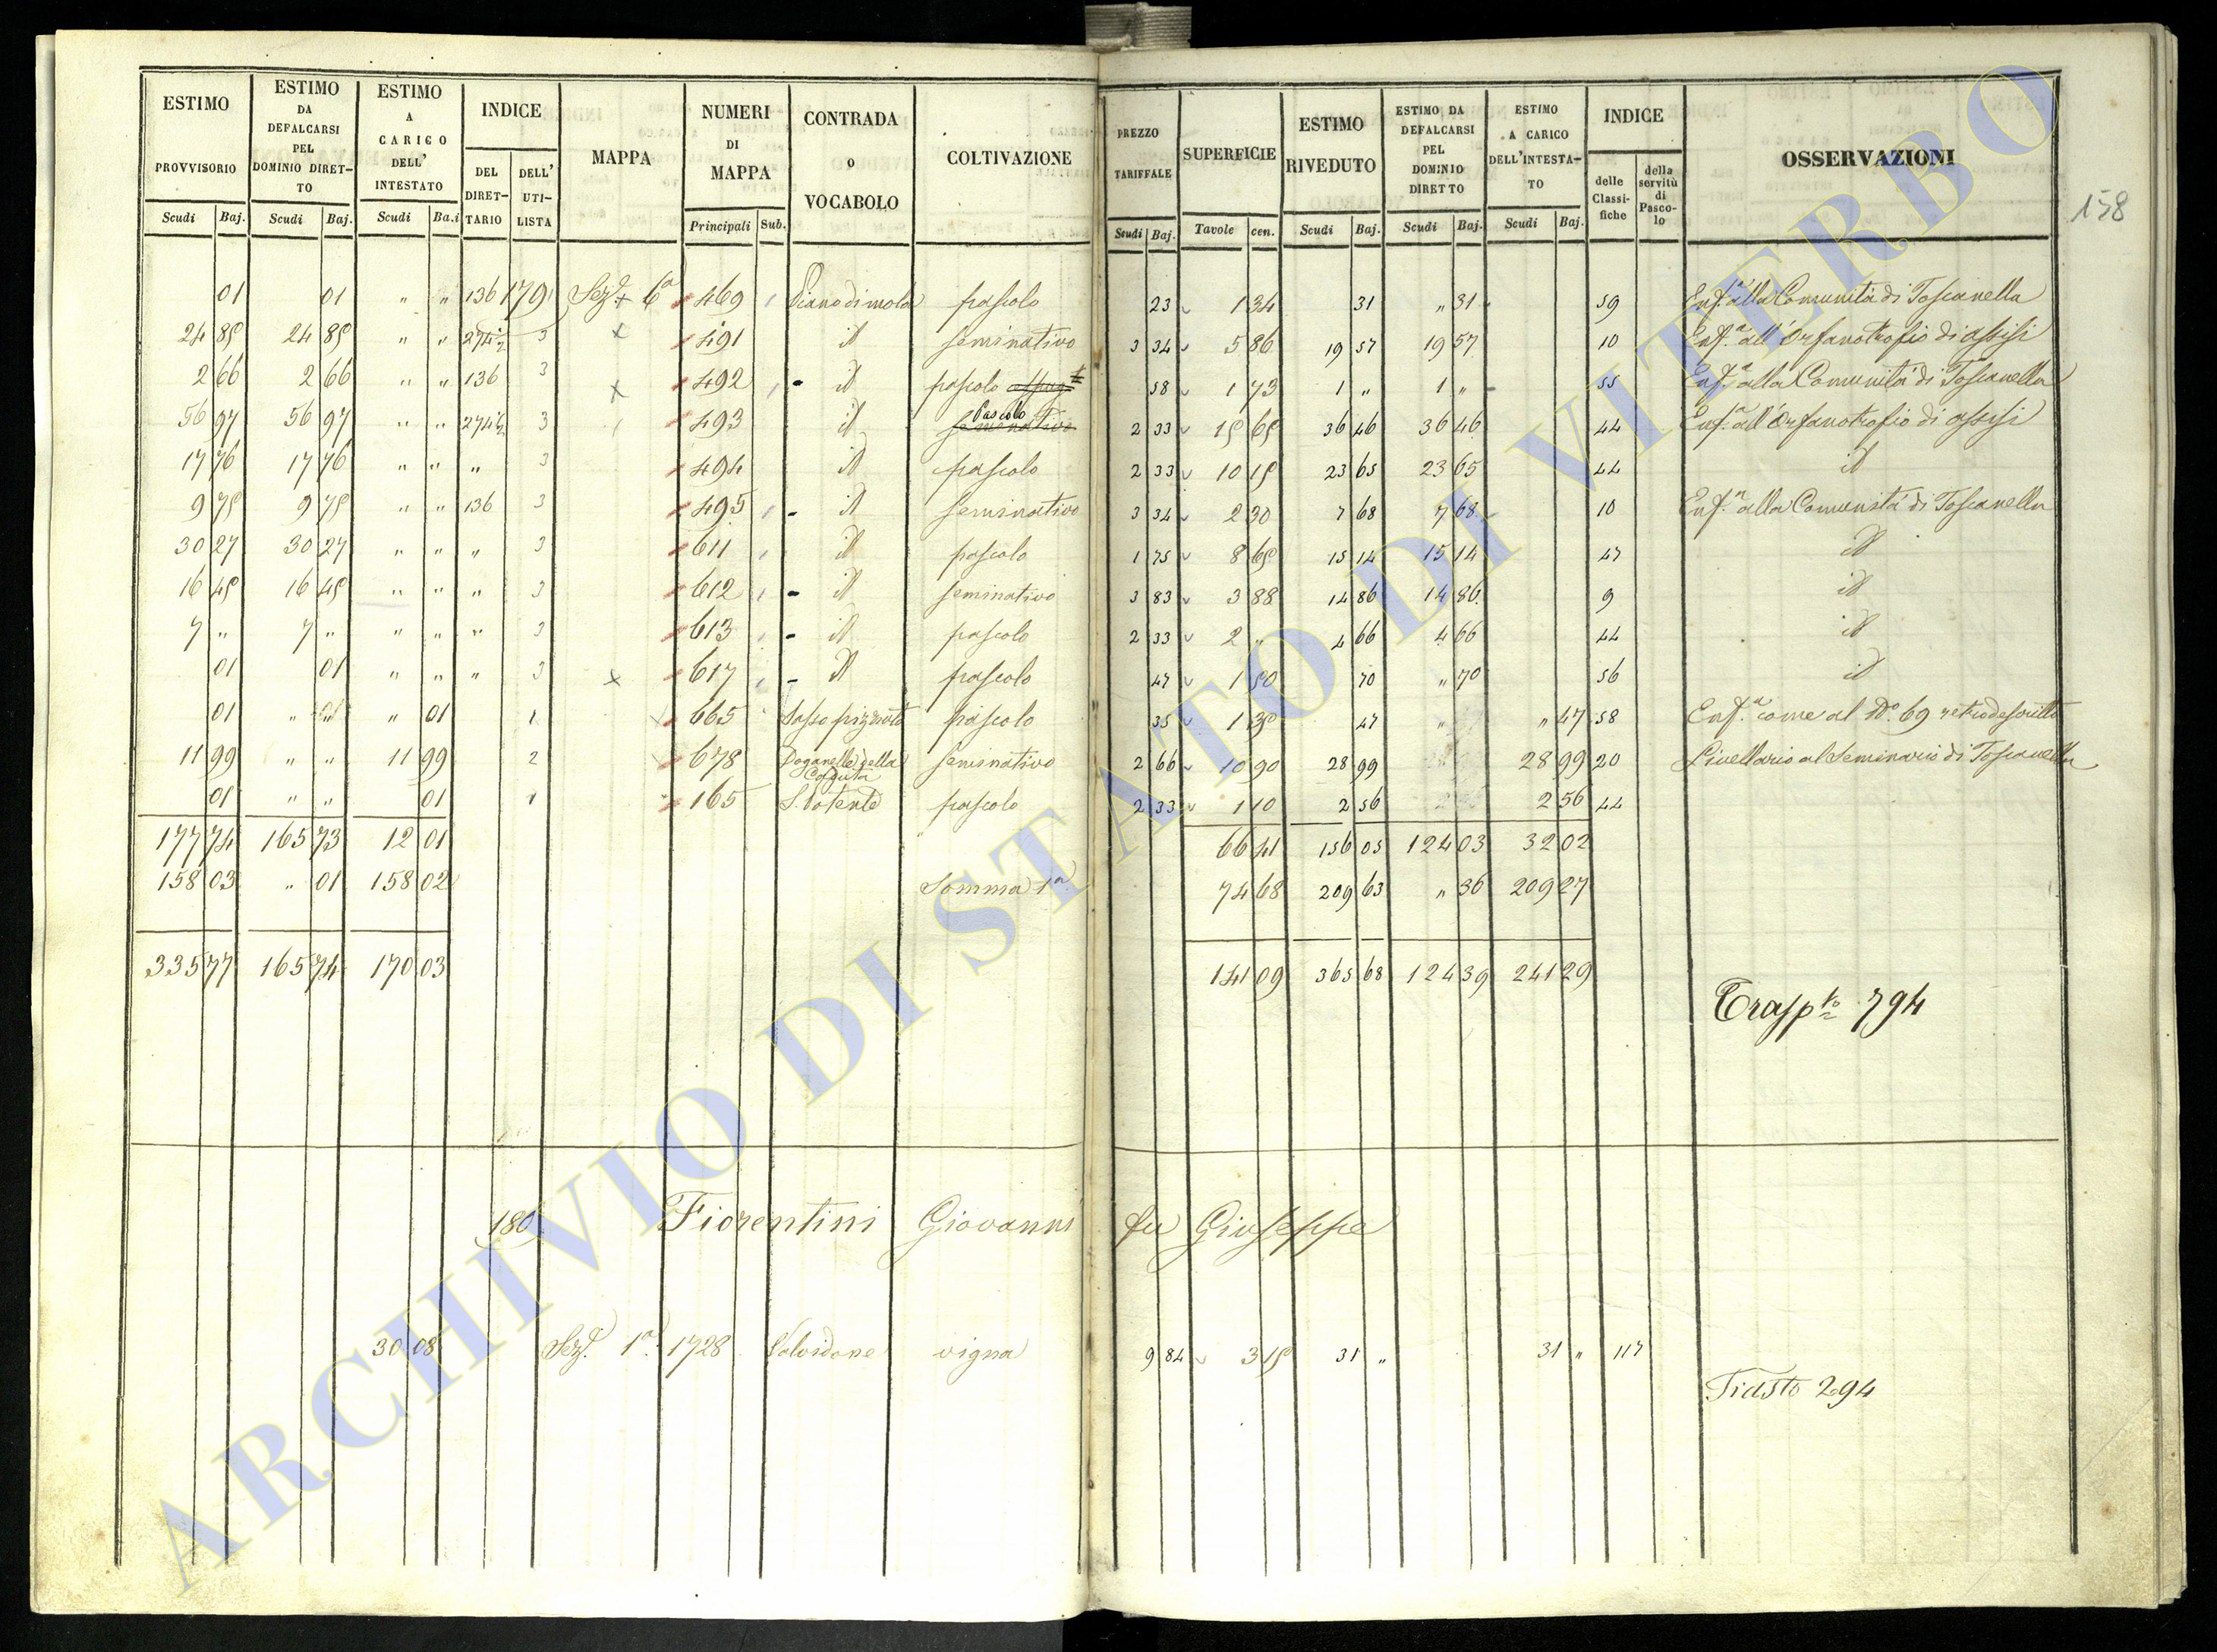 ESTIMO PROVVISORIO Scudi Baj. | ESTIMO DA DEFALCARSI PEL DOMINIO DIRETTO Scudi Baj. | ESTIMO A CARICO DELL' INTESTATO Scudi Ba.i | INDICE DEL DIRETTARIO | DELL' UTILISTA | MAPPA | NUMERI DI MAPPA Principali Sub. | CONTRADA o VOCABOLO | COLTIVAZIONE | PREZZO TARIFFALE Scudi Baj. | SUPERFICIE Tavole cen. | ESTIMO RIVEDUTO Scudi Baj. | ESTIMO DA DEFALCARSI PEL DOMINIO DIRETTO Scudi Baj. | ESTIMO A CARICO DELL'INTESTATO Scudi Baj. | INDICE delle Classifiche | della servitù di Pascolo | OSSERVAZIONI
158
01 | 01 | " " | 136 | 179 | Sez.e 6a | 469 | Piano di mola | pascolo | 23 | 1 34 | 31 | " 31 | 59 | Enf.a alla Comunità di Toscanella
24 85 | 24 85 | " " | 274½ | 3 | 491 | id | seminativo | 3 34 | 5 86 | 19 57 | 19 57 | 10 | Enf.a all'Orfanotrofio di assisi
2 66 | 2 66 | " " | 136 | 3 | 492 | id | pascolo | 58 | 1 73 | 1 " | 1 " | 55 | Enf.a alla Comunità di Toscanella
56 97 | 56 97 | " " | 274½ | 3 | 493 | id | Pascolo seminativo | 2 33 | 15 65 | 36 46 | 36 46 | 44 | Enf.a all'Orfanotrofio di assisi
17 76 | 17 76 | " " | " | 3 | 494 | id | pascolo | 2 33 | 10 15 | 23 65 | 23 65 | 44 | id
9 75 | 9 75 | " " | 136 | 3 | 495 | id | seminativo | 3 34 | 2 30 | 7 68 | 7 68 | 10 | Enf.a alla Comunità di Toscanella
30 27 | 30 27 | " " | " | 3 | 611 | id | pascolo | 1 75 | 8 65 | 15 14 | 15 14 | 47 | id
16 45 | 16 45 | " " | " | 3 | 612 | id | seminativo | 3 83 | 3 88 | 14 86 | 14 86 | 9 | id
7 " | 7 " | " " | " | 3 | 613 | id | pascolo | 2 33 | 2 " | 4 66 | 4 66 | 44 | id
01 | 01 | " " | " | 3 | 617 | id | pascolo | 47 | 1 50 | 70 | " 70 | 56 | id
01 | " " | " 01 | 1 | 665 | Sasso pizzuto | pascolo | 35 | 1 35 | 47 | " | " 47 | 58 | Enf.a come al N.o 69 retrodescritto
11 99 | " " | 11 99 | 2 | 678 | Doganelle della | seminativo | 2 66 | 10 90 | 28 99 | 28 99 | 20 | Livellario al Seminario di Toscanella
01 | " " | 01 | 1 | 165 | S. Potente | pascolo | 2 33 | 1 10 | 2 56 | 2 56 | 44
177 74 | 165 73 | 12 01 | 66 41 | 156 05 | 124 03 | 32 02
158 03 | " 01 | 158 02 | Somma 1a | 74 68 | 209 63 | " 36 | 209 27
335 77 | 165 74 | 170 03 | 141 09 | 365 68 | 124 39 | 241 29
Trasp.to 794
180 Fiorentini Giovanni fu Giuseppe
30 08 | Sez.e 1a | 1728 | Valvidone | vigna | 9 84 | 3 15 | 31 " | 31 " | 117
Tiasto 294
ARCHIVIO DI STATO DI VITERBO